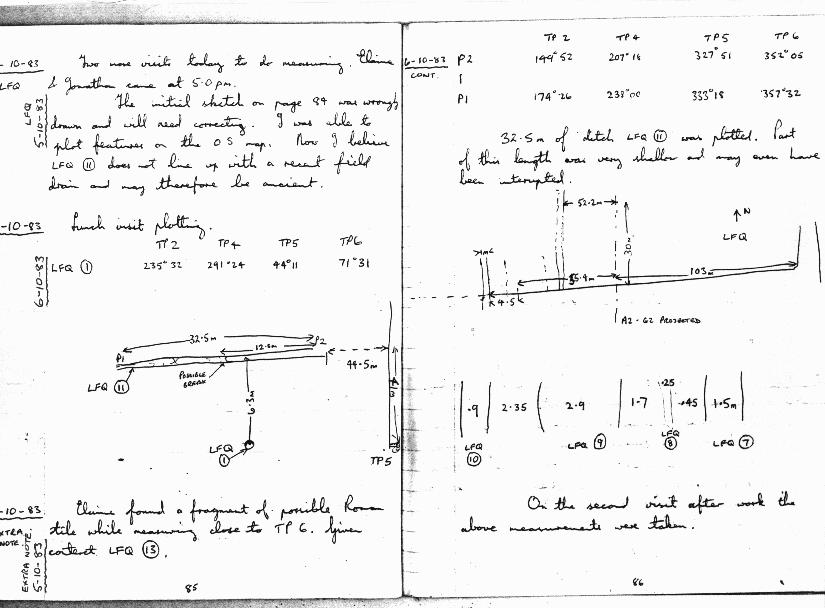 -10-83
LFQ
Two more visits today to do measuring. Elaine
& Jonathan came at 5.0pm.
LFQ
5-10-83
The initial sketch on page 84 was wrongly
drawn and will need correcting. I was able to
plot features on the OS map. Now I believe
LFQ 11 does not line up with a recent field
drain and may therefore be ancient.
-10-83
Lunch visit plotting.
TP2 TP4 TP5 TP6
6-10-83
LFQ 1 235°32 291°24 44°11 71°31
32.5m
P1
12.8m
P2
44.5m
LFQ 11
POSSIBLE
BREAK
6.3m
LFQ
1
TP5
-10-83
EXTRA
NOTE
EXTRA NOTE.
5-10-83
Elaine found a fragment of possible Roman
tile while measuring close to TP 6. Given
context LFQ 13.
85
6-10-83
CONT.
TP 2 TP 4 TP5 TP 6
P2 149°52 207°18 327°51 352°05
P1 174°26 238°00 333°18 357°32
32.5m of ditch LFQ 11 was plotted. Part
of this length was very shallow and may even have
been interupted.
52.2m
30m
N
LFQ
1m
4.5
103m
A2-G2 PROJECTED
.9 2.35 2.9 1.7 .25 .45 1.5m
LFQ
10
LFQ 9
LFQ
8
LFQ 7
On the second visit after work the
above measurements were taken.
86